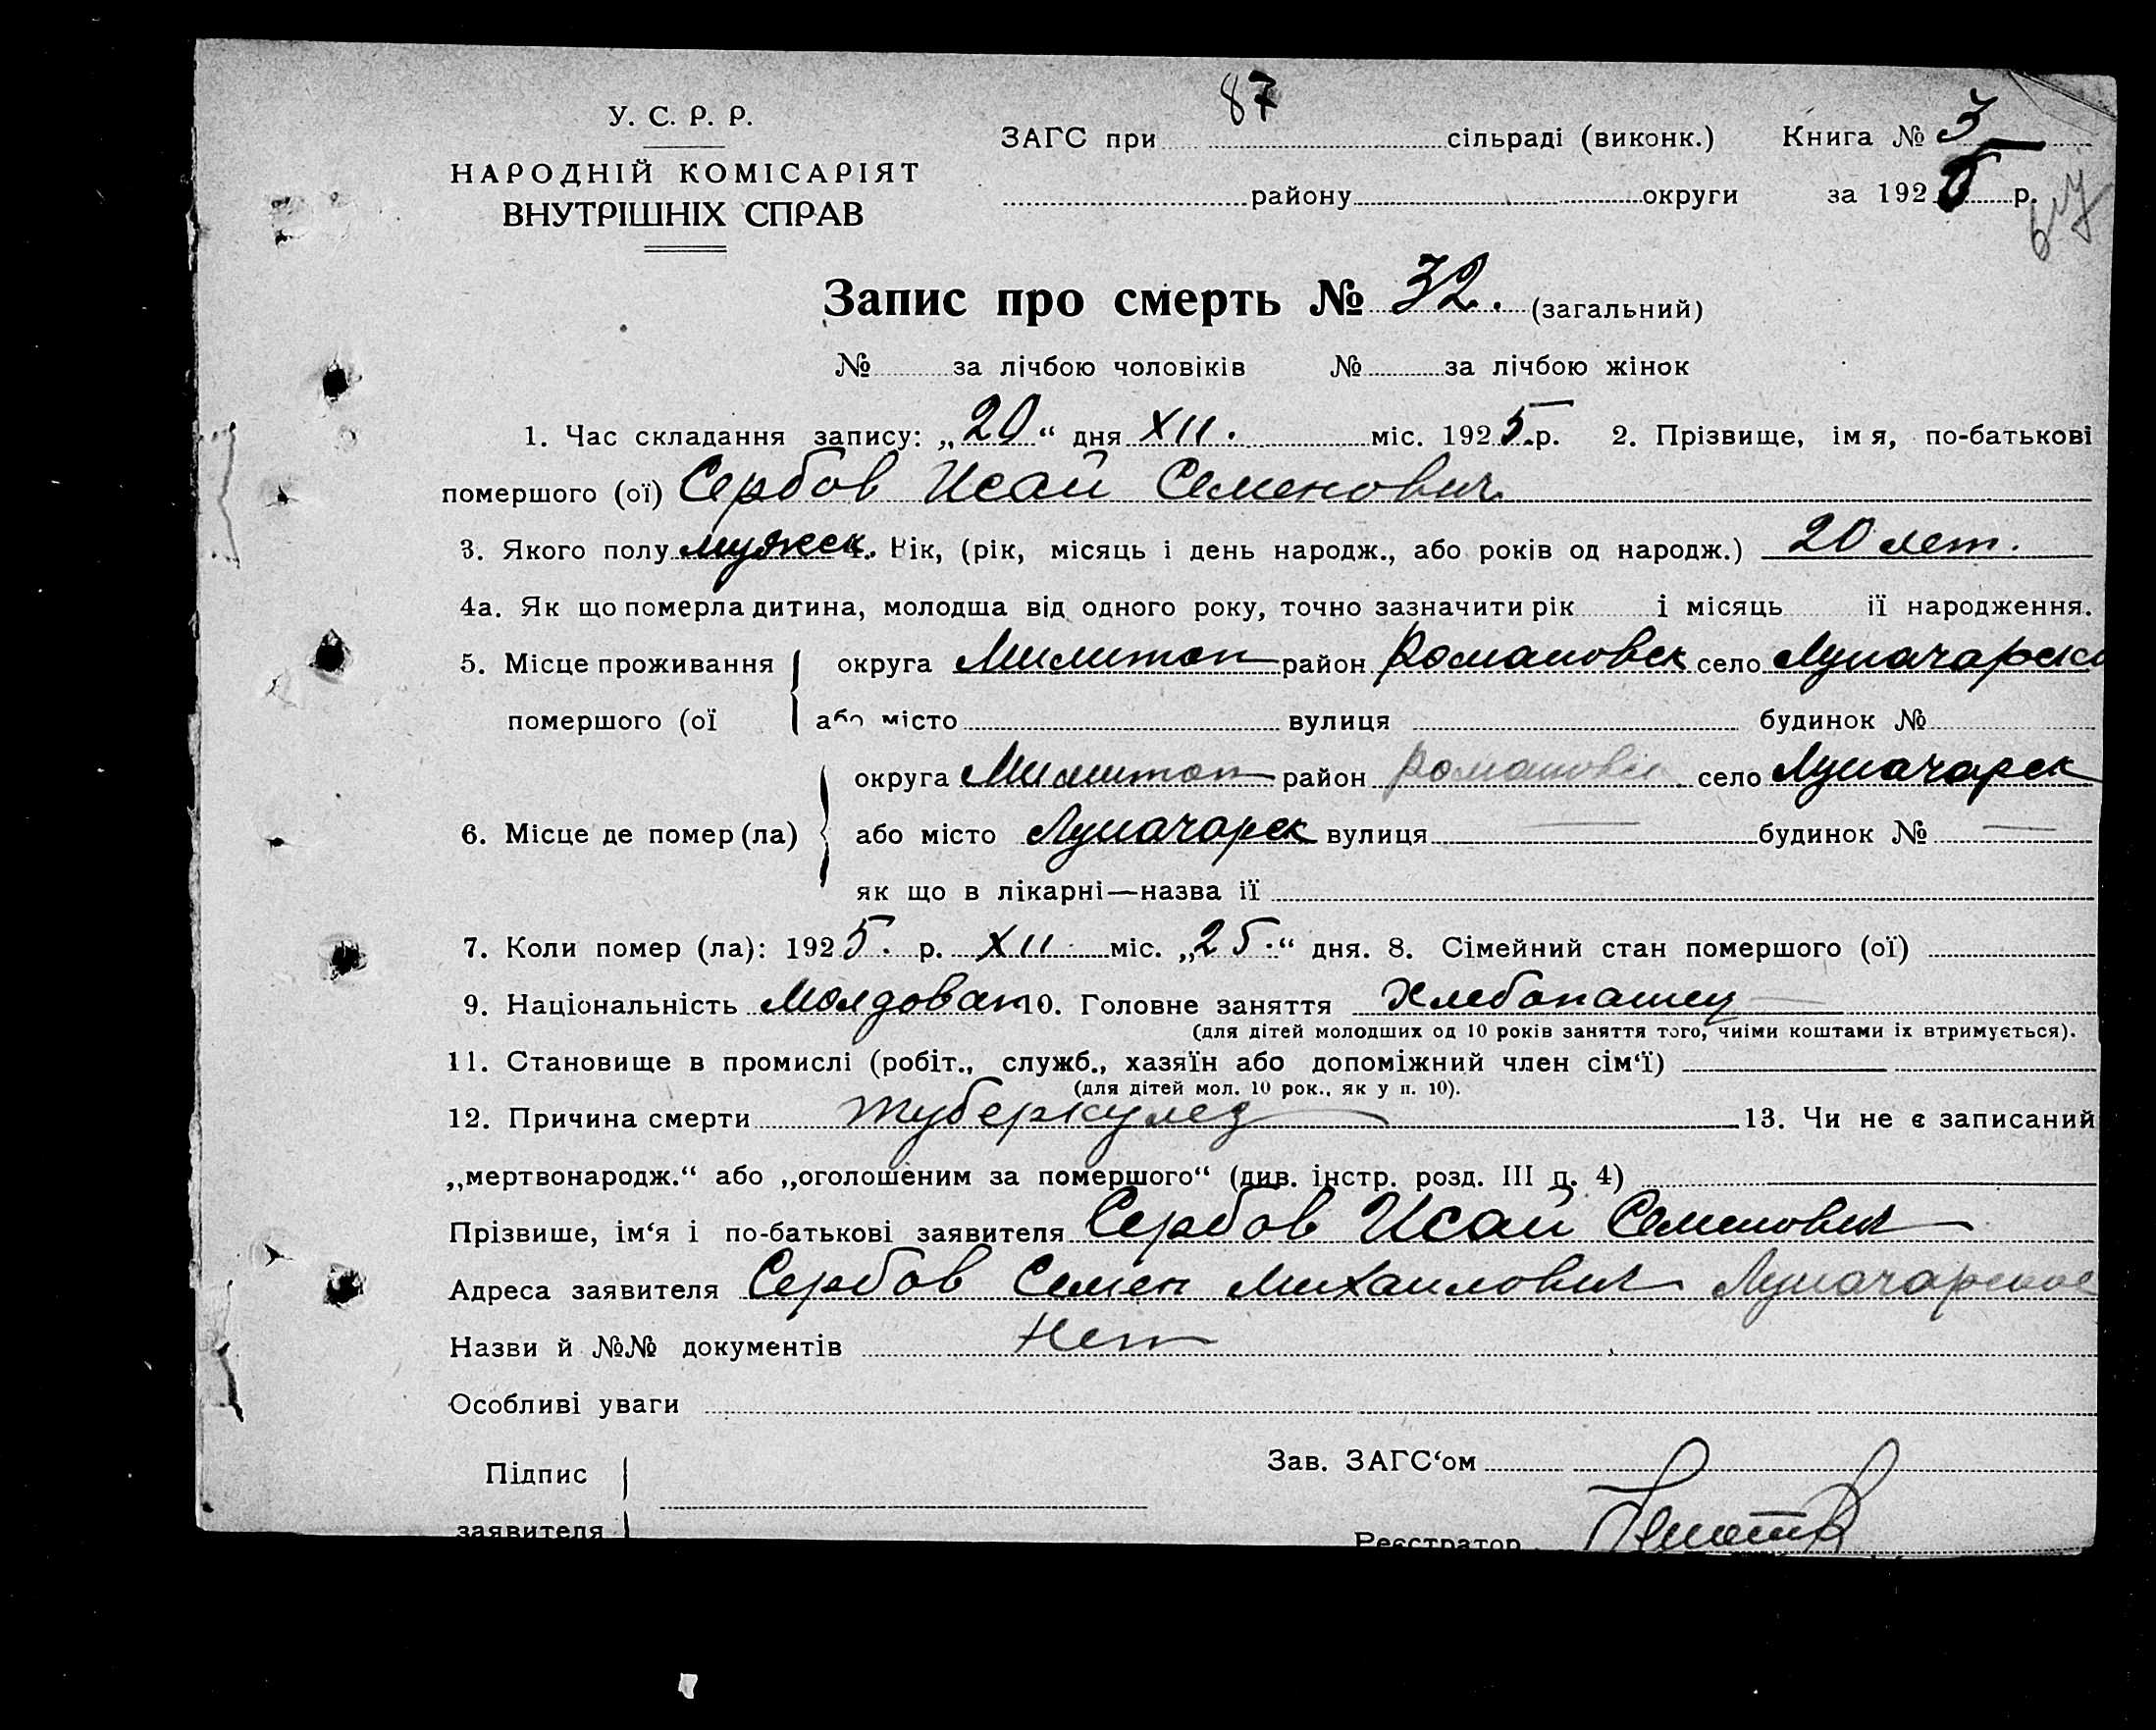 87
У. С. Р. Р.
НАРОДНІЙ КОМІСАРІЯТ
ВНУТРІШНІХ СПРАВ
ЗАГС при сільраді (виконк.) Книга № 3
району округи за 192 р.
67
Запис про смерть № 32. (загальний)
№ за лічбою чоловіків № за лічбою жінок
1. Час складання запису: „20“ дня XII. міс. 1925.р. 2. Прізвище, імя, по-батькові
помершого (ої) Сербов Исай Семенович
3. Якого полу мужеск. Вік, (рік, місяць і день народж., або років од народж.) 20 лет.
4а. Як що померла дитина, молодша від одного року, точно зазначити рік і місяць її народження.
5. Місце проживання округа Милитоп район Романовск село Луначарско
помершого (ої або місто вулиця будинок №
округа Милитоп район Романовск село Луначарск
6. Місце де помер (ла) або місто Луначарск вулиця — будинок № —
як що в лікарні—назва її
7. Коли помер (ла): 1925. р. XII міс. „25.“ дня. 8. Сімейний стан помершого (ої)
9. Національність Молдован 10. Головне заняття Хлебопашец
(для дітей молодших од 10 років заняття того, чиїми коштами їх втримується).
11. Становище в промислі (робіт., служб., хазяїн або допоміжний член сім‘ї)
(для дітей мол. 10 рок., як у п. 10).
12. Причина смерти туберкулез 13. Чи не є записаний
„мертвонародж.“ або „оголошеним за помершого“ (див. інстр. розд. III п. 4)
Прізвише, ім‘я і по-батькові заявителя Сербов Исай Семенович
Адреса заявителя Сербов Семен Михайлович Луначарское
Назви й №№ документів Нет
Особливі уваги
Підпис
заявителя
Зав. ЗАГС‘ом
Реєстратор